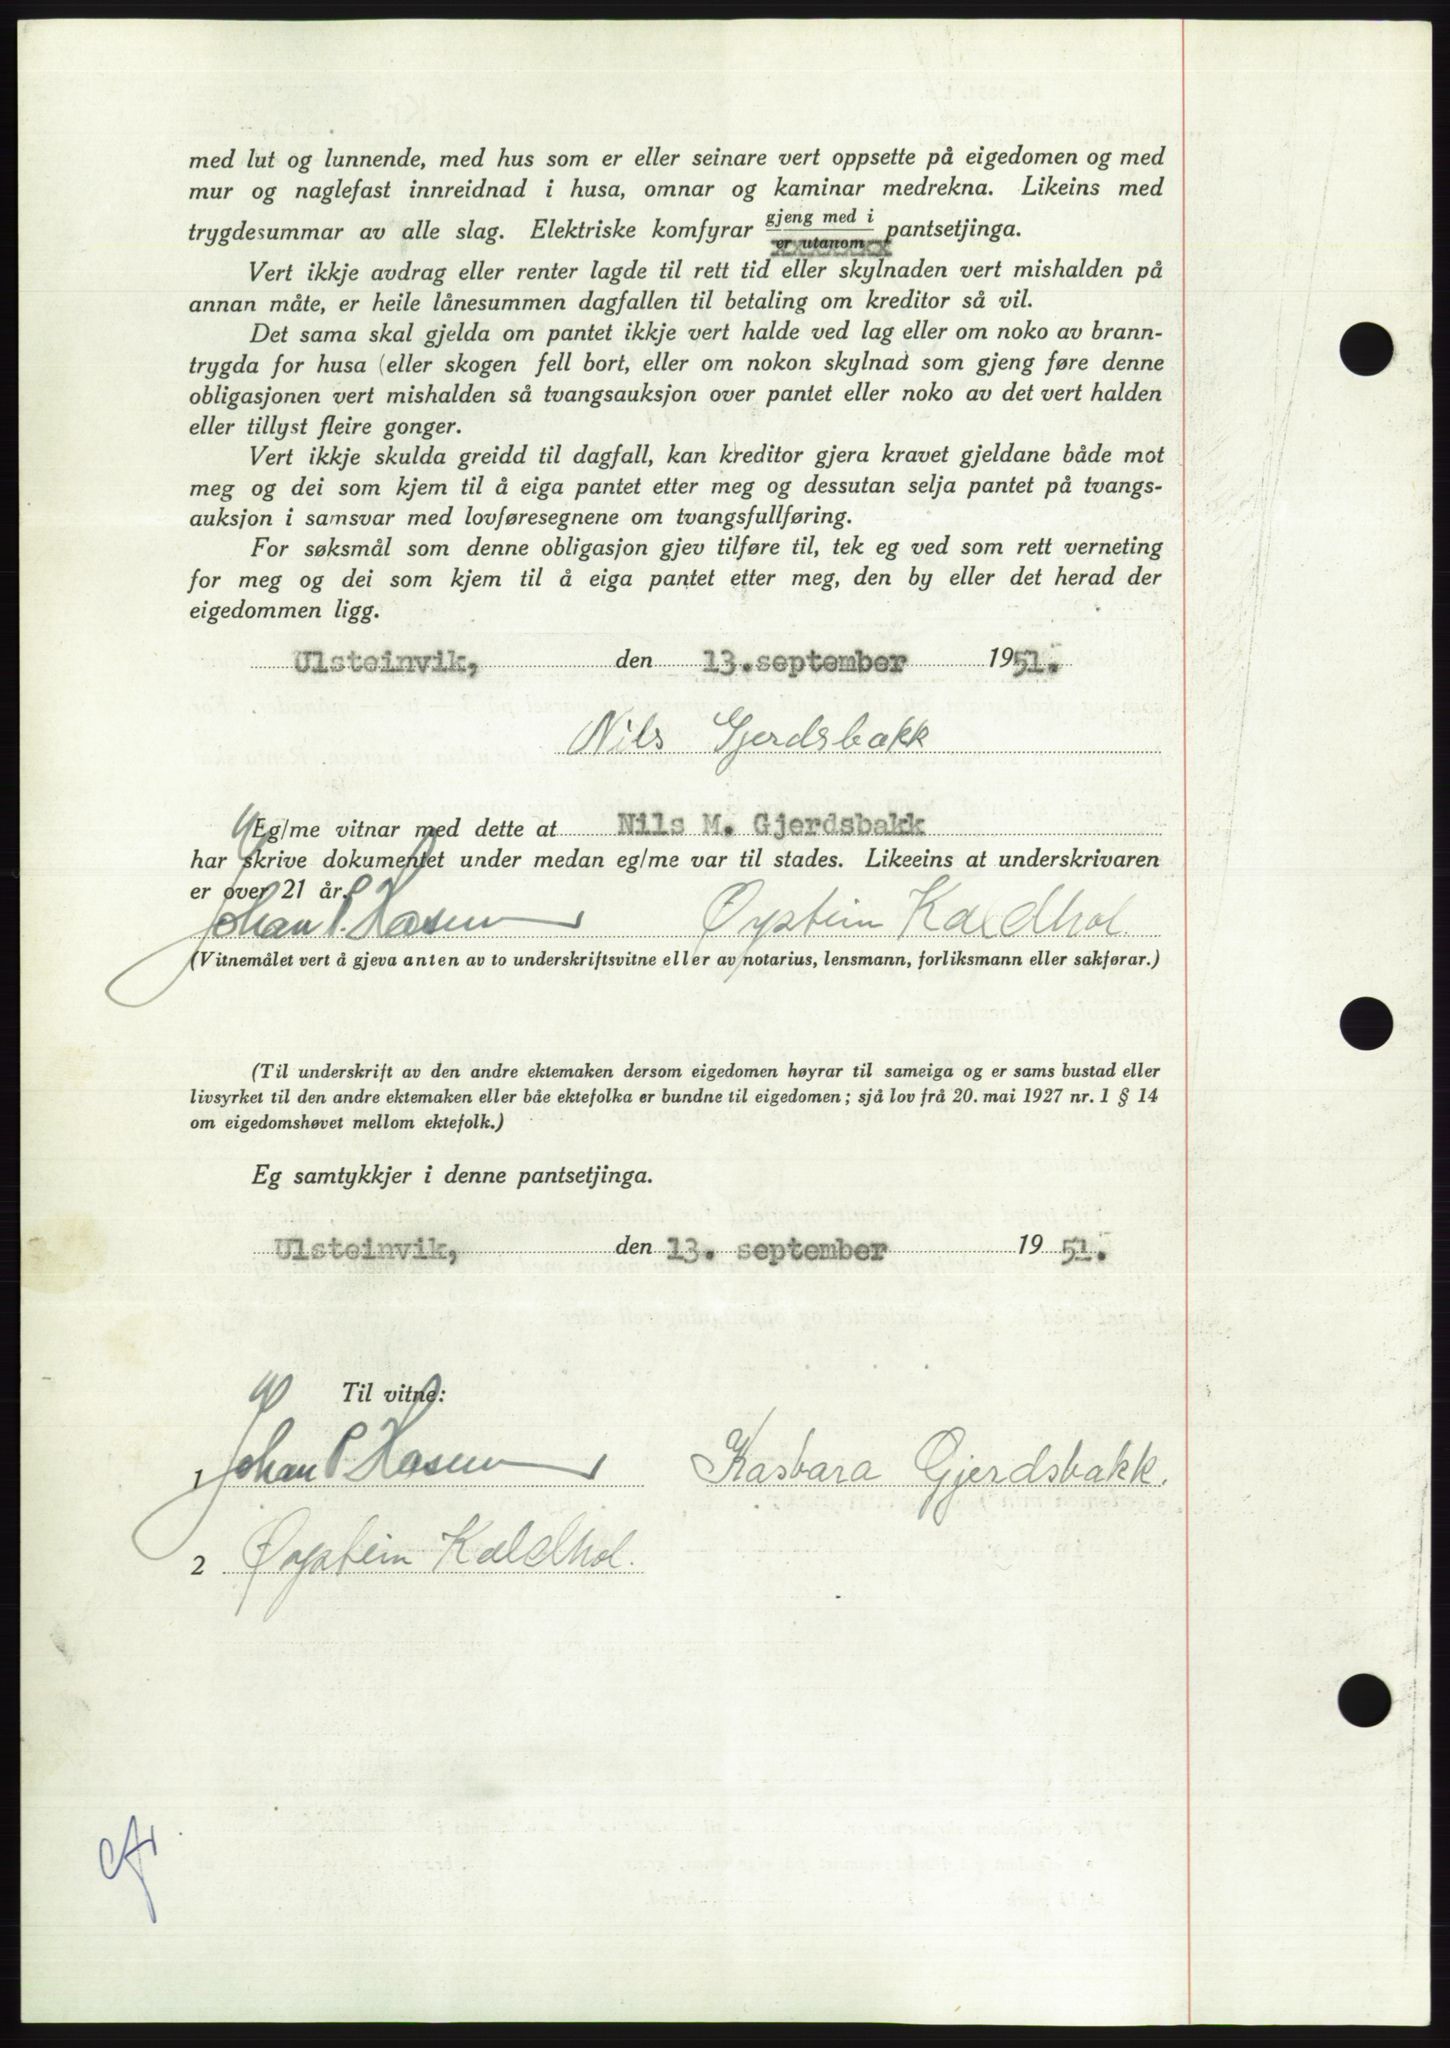 med lut og lunnende, med hus som er eller seinare vert oppsette på eigedomen og med
mur og naglefast innreidnad i husa, omnar og kaminar medrekna. Likeins med
trygdesummar av alle slag. Elektriske komfyrar gjeng med i pantsetjinga.
er utanom
Vert ikkje avdrag eller renter lagde til rett tid eller skylnaden vert mishalden på
annan måte, er heile lånesummen dagfallen til betaling om kreditor så vil.
Det sama skal gjelda om pantet ikkje vert halde ved lag eller om noko av brann-
trygda for husa (eller skogen fell bort, eller om nokon skylnad som gjeng føre denne
obligasjonen vert mishalden så tvangsauksjon over pantet eller noko av det vert halden
eller tillyst fleire gonger.
Vert ikkje skulda greidd til dagfall, kan kreditor gjera kravet gjeldane både mot
meg og dei som kjem til å eiga pantet etter meg og dessutan selja pantet på tvangs-
auksjon i samsvar med lovføresegnene om tvangsfullføring.
For søksmål som denne obligasjon gjev tilføre til, tek eg ved som rett verneting
for meg og dei som kjem til å eiga pantet etter meg, den by eller det herad der
eigedommen ligg.
Ulsteinvik, den 13.september 1951.
Nils Gjerdsbakk
Eg/me vitnar med dette at Nils M. Gjerdsbakk
har skrive dokumentet under medan eg/me var til stades. Likeeins at underskrivaren
er over 21 år.
Johan P. Hasun Øystein Kaldhol.
(Vitnemålet vert å gjeva anten av to underskriftsvitne eller av notarius, lensmann, forliksmann eller sakførar.)
(Til underskrift av den andre ektemaken dersom eigedomen høyrar til sameiga og er sams bustad eller
livsyrket til den andre ektemaken eller båe ektefolka er bundne til eigedomen; sjå lov frå 20. mai 1927 nr. 1 § 14
om eigedomshøvet mellom ektefolk.)
Eg samtykkjer i denne pantsetjinga.
Ulsteinvik, den 13. september 1951.
Til vitne:
1 Johan P. Hasun Kasbara Gjerdsbakk.
2 Øystein Kaldhol.